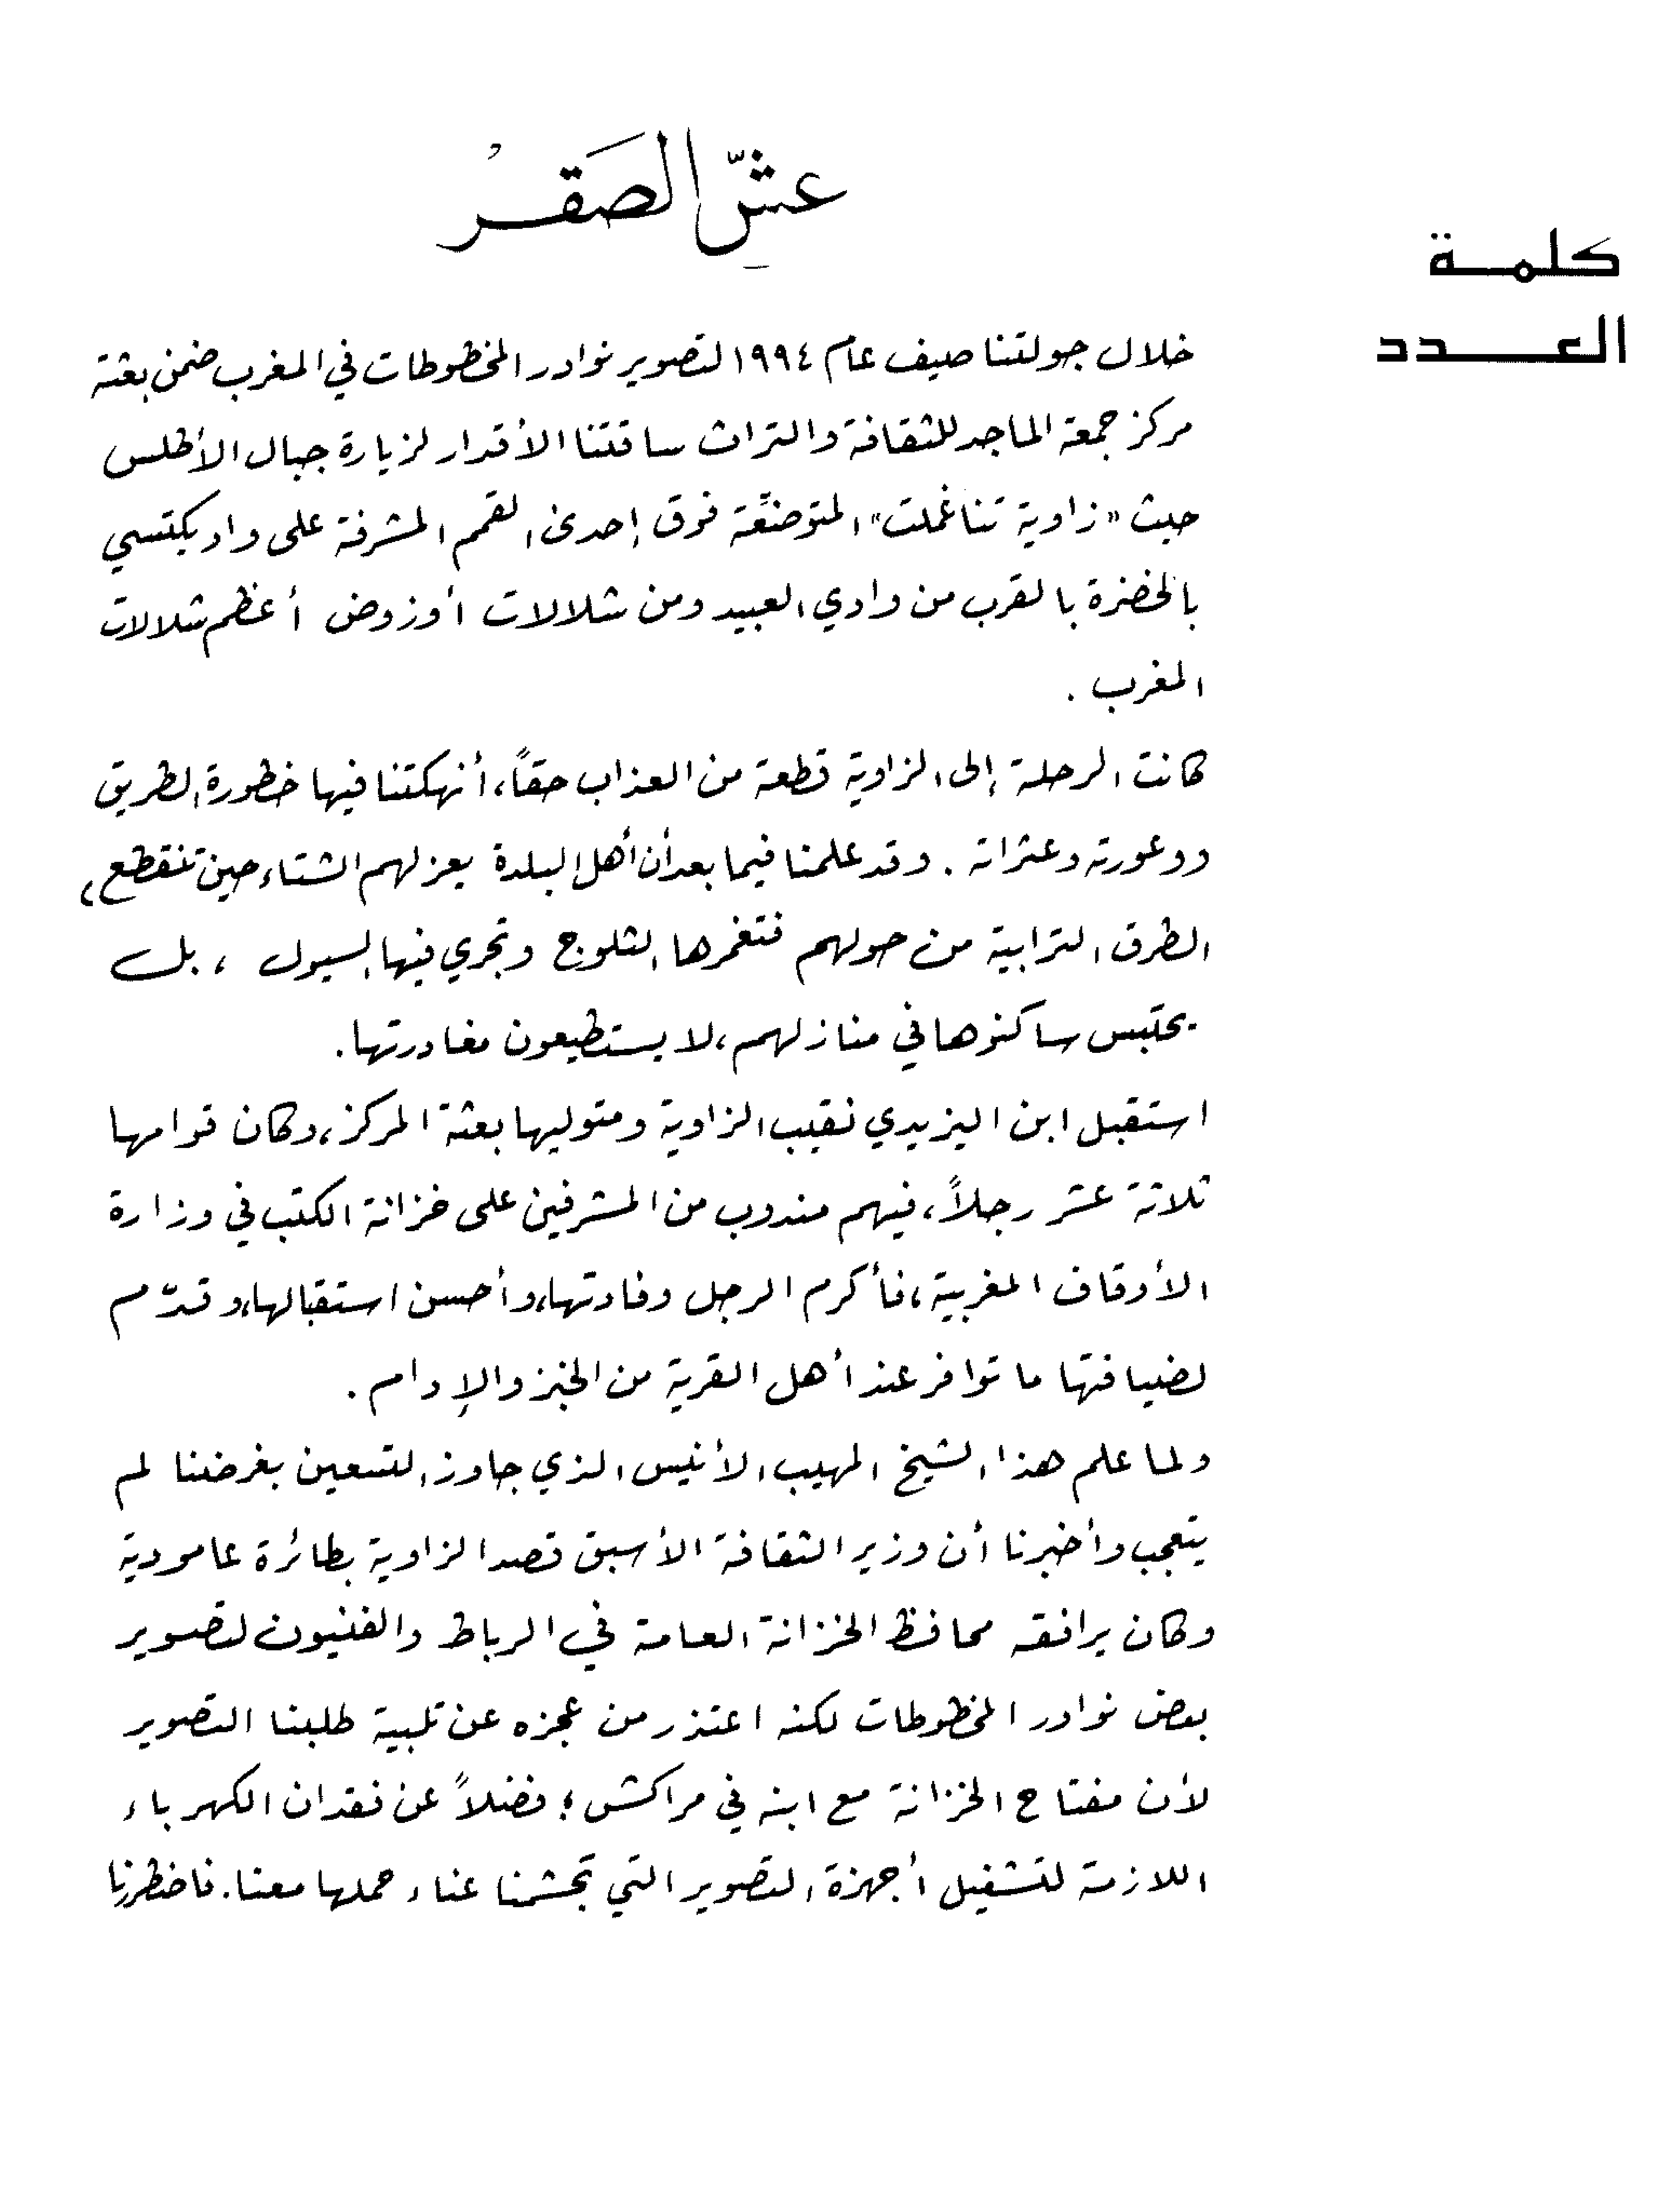 عشّ الصَقرْ
كلمة
العدد
خلال جولتنا صيف عام ١٩٩٤ لتصوير نوادر المخطوطات في المغرب ضمن بعثة
مركز جمعة الماجد للثقافة والتراث ساقتنا الأقدار لزيارة جبال الأطلس
حيث «زاوية تناغملت» المتوضّعة فوق إحدى القمم المشرفة على واد يكتسي
بالخضرة بالقرب من وادي العبيد ومن شلالات أوزوض أعظم شلالات
المغرب .
كانت الرحلة إلى الزاوية قطعة من العذاب حقاً، أنهكتنا فيها خطورة الطريق
ووعورته وعثراته . وقد علمنا فيما بعد أن أهل البلدة يعزلهم الشتاء حين تنقطع،
الطرق الترابية من حولهم فتغمرها الثلوج وتجري فيها السيول ، بل
يحتبس ساكنوها في منازلهم، لا يستطيعون مغادرتها.
استقبل ابن اليزيدي نقيب الزاوية ومتوليها بعثة المركز، وكان قوامها
ثلاثة عشر رجلاً، فيهم مندوب من المشرفين على خزانة الكتب في وزارة
الأوقاف المغربية، فأكرم الرجل وفادتها، وأحسن استقبالها، وقدّم
لضيافتها ما توافر عند أهل القرية من الخبز والإدام .
ولما علم هذا الشيخ المهيب الأنيس الذي جاوز التسعين بغرضنا لم
يتعجب وأخبرنا أن وزير الثقافة الأسبق قصد الزاوية بطائرة عامودية
وكان يرافقه محافظ الخزانة العامة في الرباط والفنيون لتصوير
بعض نوادر المخطوطات لكنه اعتذر من عجزه عن تلبية طلبنا التصوير
لأن مفتاح الخزانة مع ابنه في مراكش؛ فضلاً عن فقدان الكهرباء
اللازمة لتشغيل أجهزة التصوير التي تجشمنا عناء حملها معنا. فاضطررنا